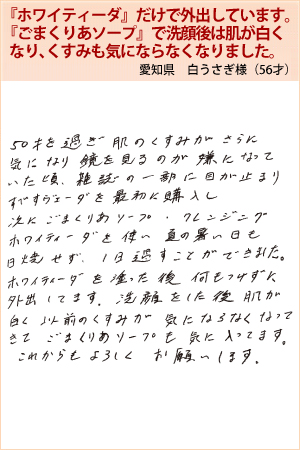 『ホワイティーダ』だけで外出しています。
『ごまくりあソープ』で洗顔後は肌が白く
なり、くすみも気にならなくなりました。
愛知県　白うさぎ様（56才）
50才を過ぎ 肌のくすみが さらに
気になり 鏡を見るのが 嫌になって
いた頃、雑誌の一部に目が止まり
すぐすヴェーダを最初に購入し
次に ごまくりあソープ・クレンジング
ホワイティーダを使い 夏の暑い日も
日焼せず、1日過すことができました。
ホワイティーダを塗った後 何もつけずに
外出してます。洗顔をした後 肌が
白く 以前のくすみが 気にならなくなって
きて ごまくりあソープも 気に入ってます。
これからも よろしく お願いします。